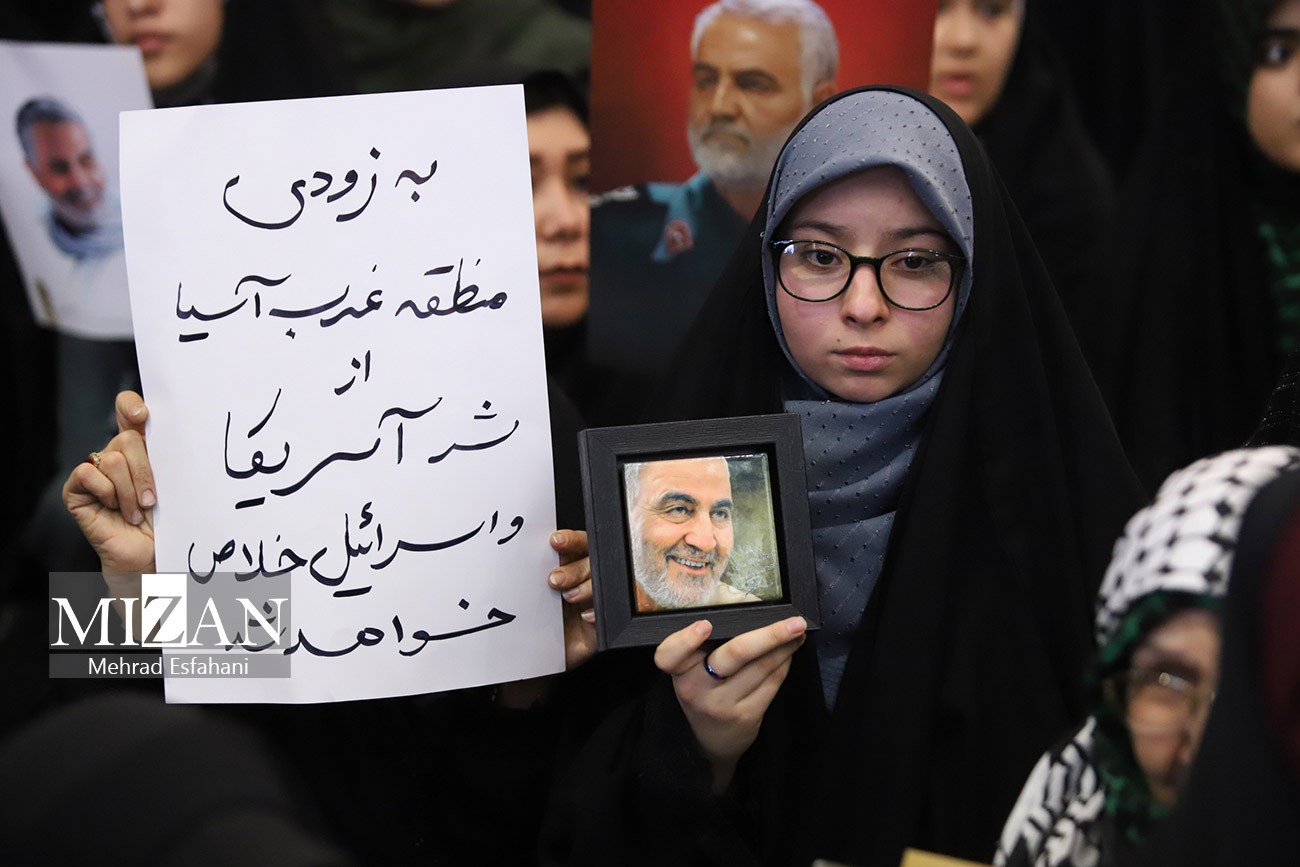 به زودی
منطقه غرب آسیا
از
شر آمریکا
و اسرائیل خلاص
خواهد شد
MIZAN
Mehrad Esfahani